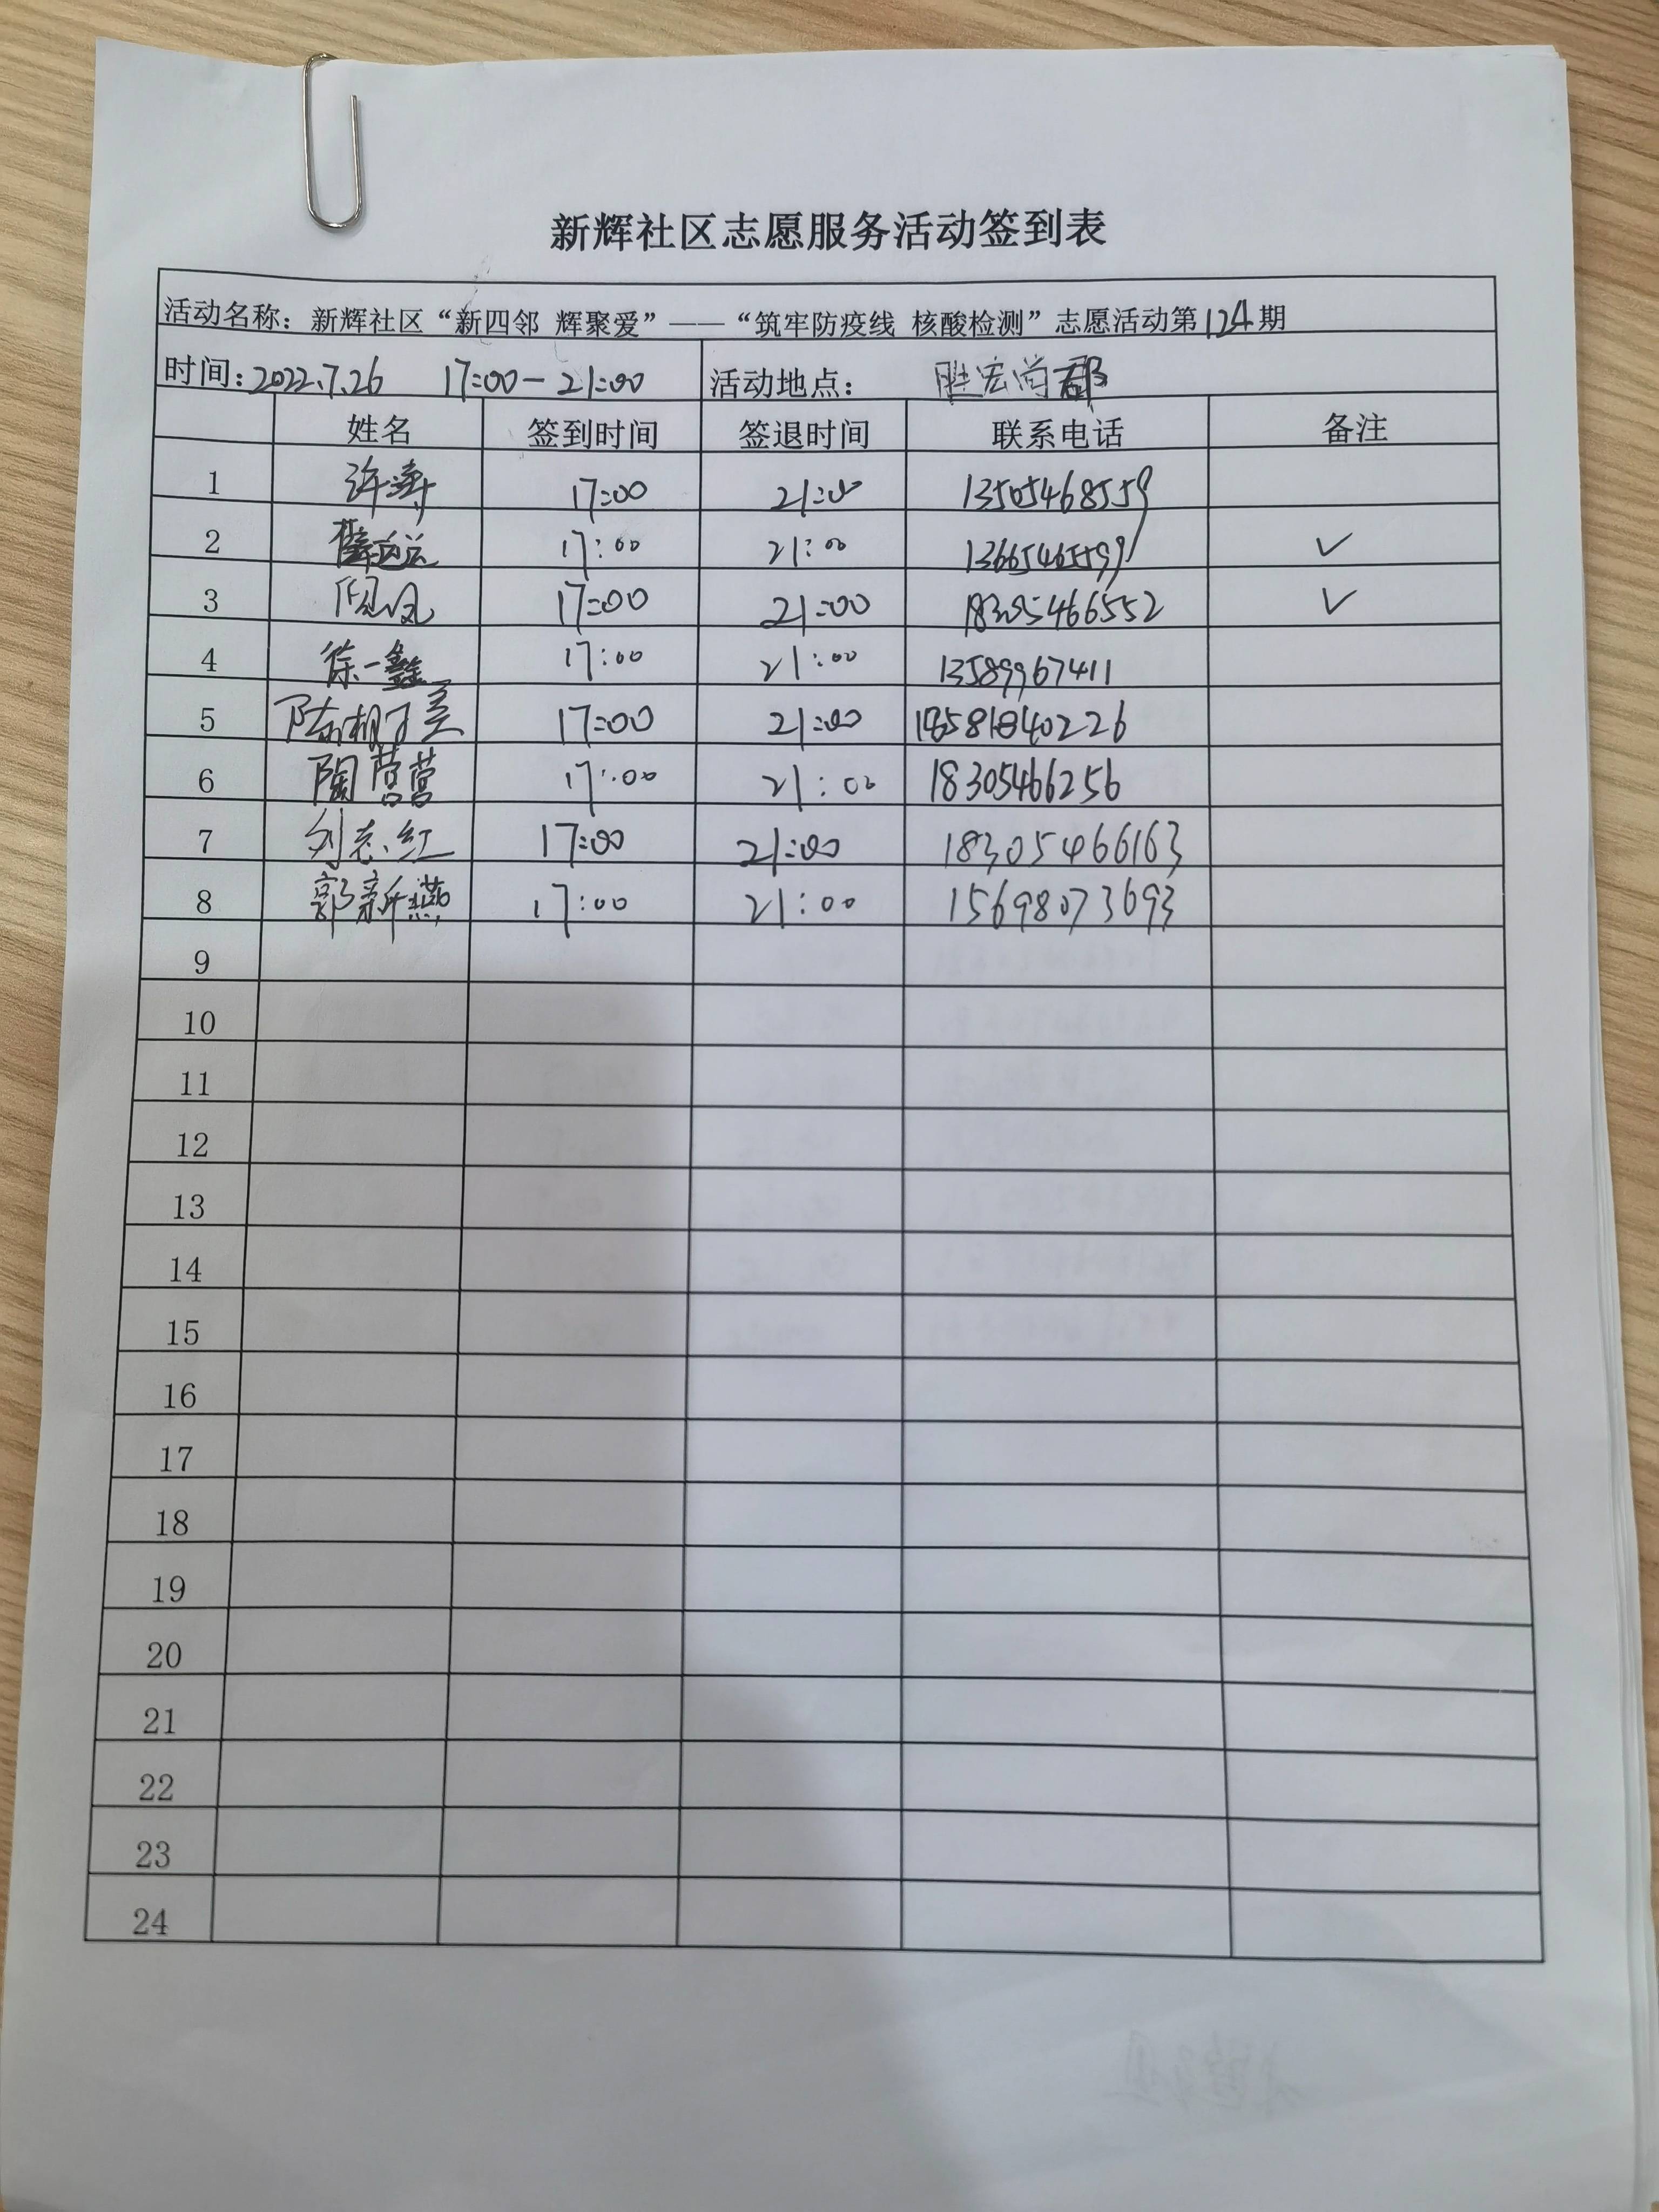 新辉社区志愿服务活动签到表
活动名称：新辉社区“新四邻 辉聚爱”——“筑牢防疫线 核酸检测”志愿活动第124期
时间：2022.7.26 17:00-21:00 活动地点：胜宏尚郡
姓名 签到时间 签退时间 联系电话 备注
1 许涛 17:00 21:00 13505468559
2 17:00 21:00 13665465599 ✓
3 17:00 21:00 18305466552 ✓
4 徐一鑫 17:00 21:00 13589967411
5 17:00 21:00
6 陶营营 17:00 21:00 18305466256
7 刘志红 17:00 21:00 18305466163
8 郭新燕 17:00 21:00 15698073693
9
10
11
12
13
14
15
16
17
18
19
20
21
22
23
24